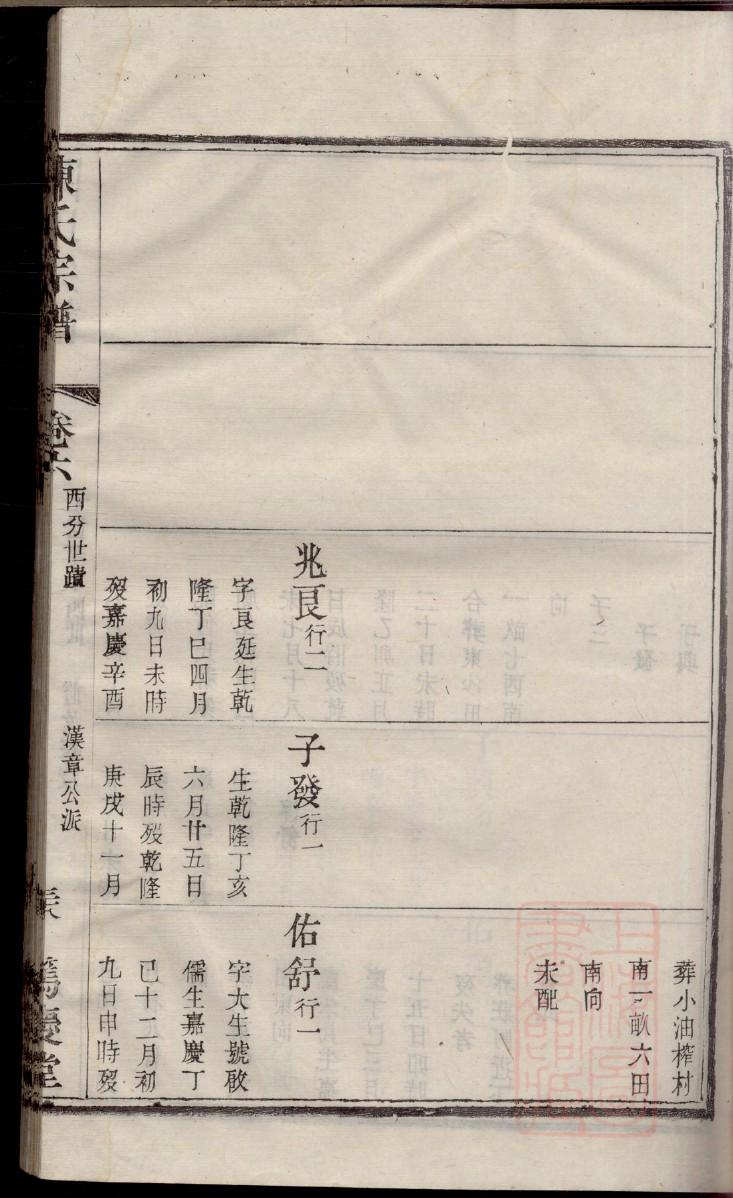 葬小油榨村
南一畝六田
南向
未配
兆良行二
字良延生乾
隆丁巳四月
初九日未時
歿嘉慶辛酉
子發行一
生乾隆丁亥
六月廿五日
辰時歿乾隆
庚戌十一月
佑舒行一
字大生號啟
儒生嘉慶丁
巳十二月初
九日申時歿
陳氏宗譜
卷六
西分世蹟
漢章公派
篤慶堂